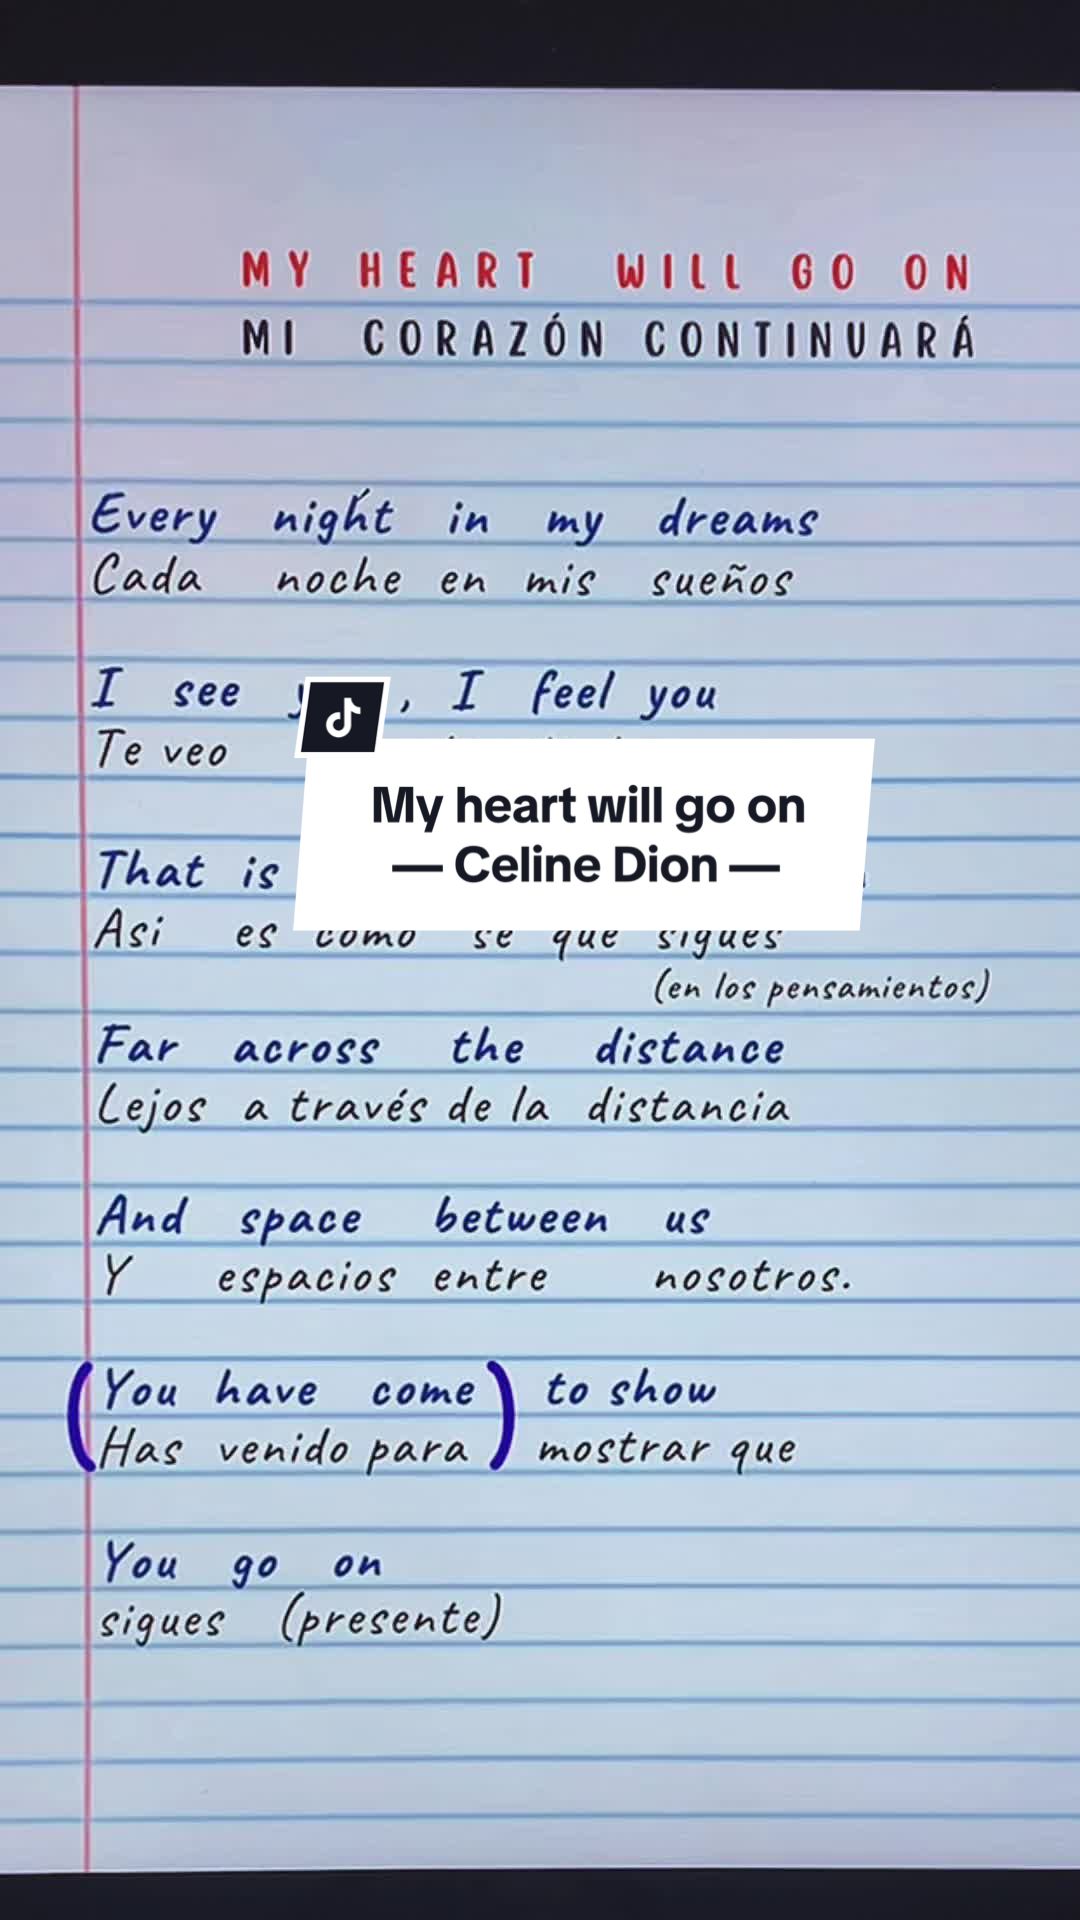 MY HEART WILL GO ON
MI CORAZÓN CONTINUARÁ
Every night in my dreams
Cada noche en mis sueños
I see , I feel you
Te veo
My heart will go on
— Celine Dion —
That is
Asi es como se que sigues
(en los pensamientos)
Far across the distance
Lejos a través de la distancia
And space between us
Y espacios entre nosotros.
(You have come) to show
(Has venido para) mostrar que
You go on
sigues (presente)